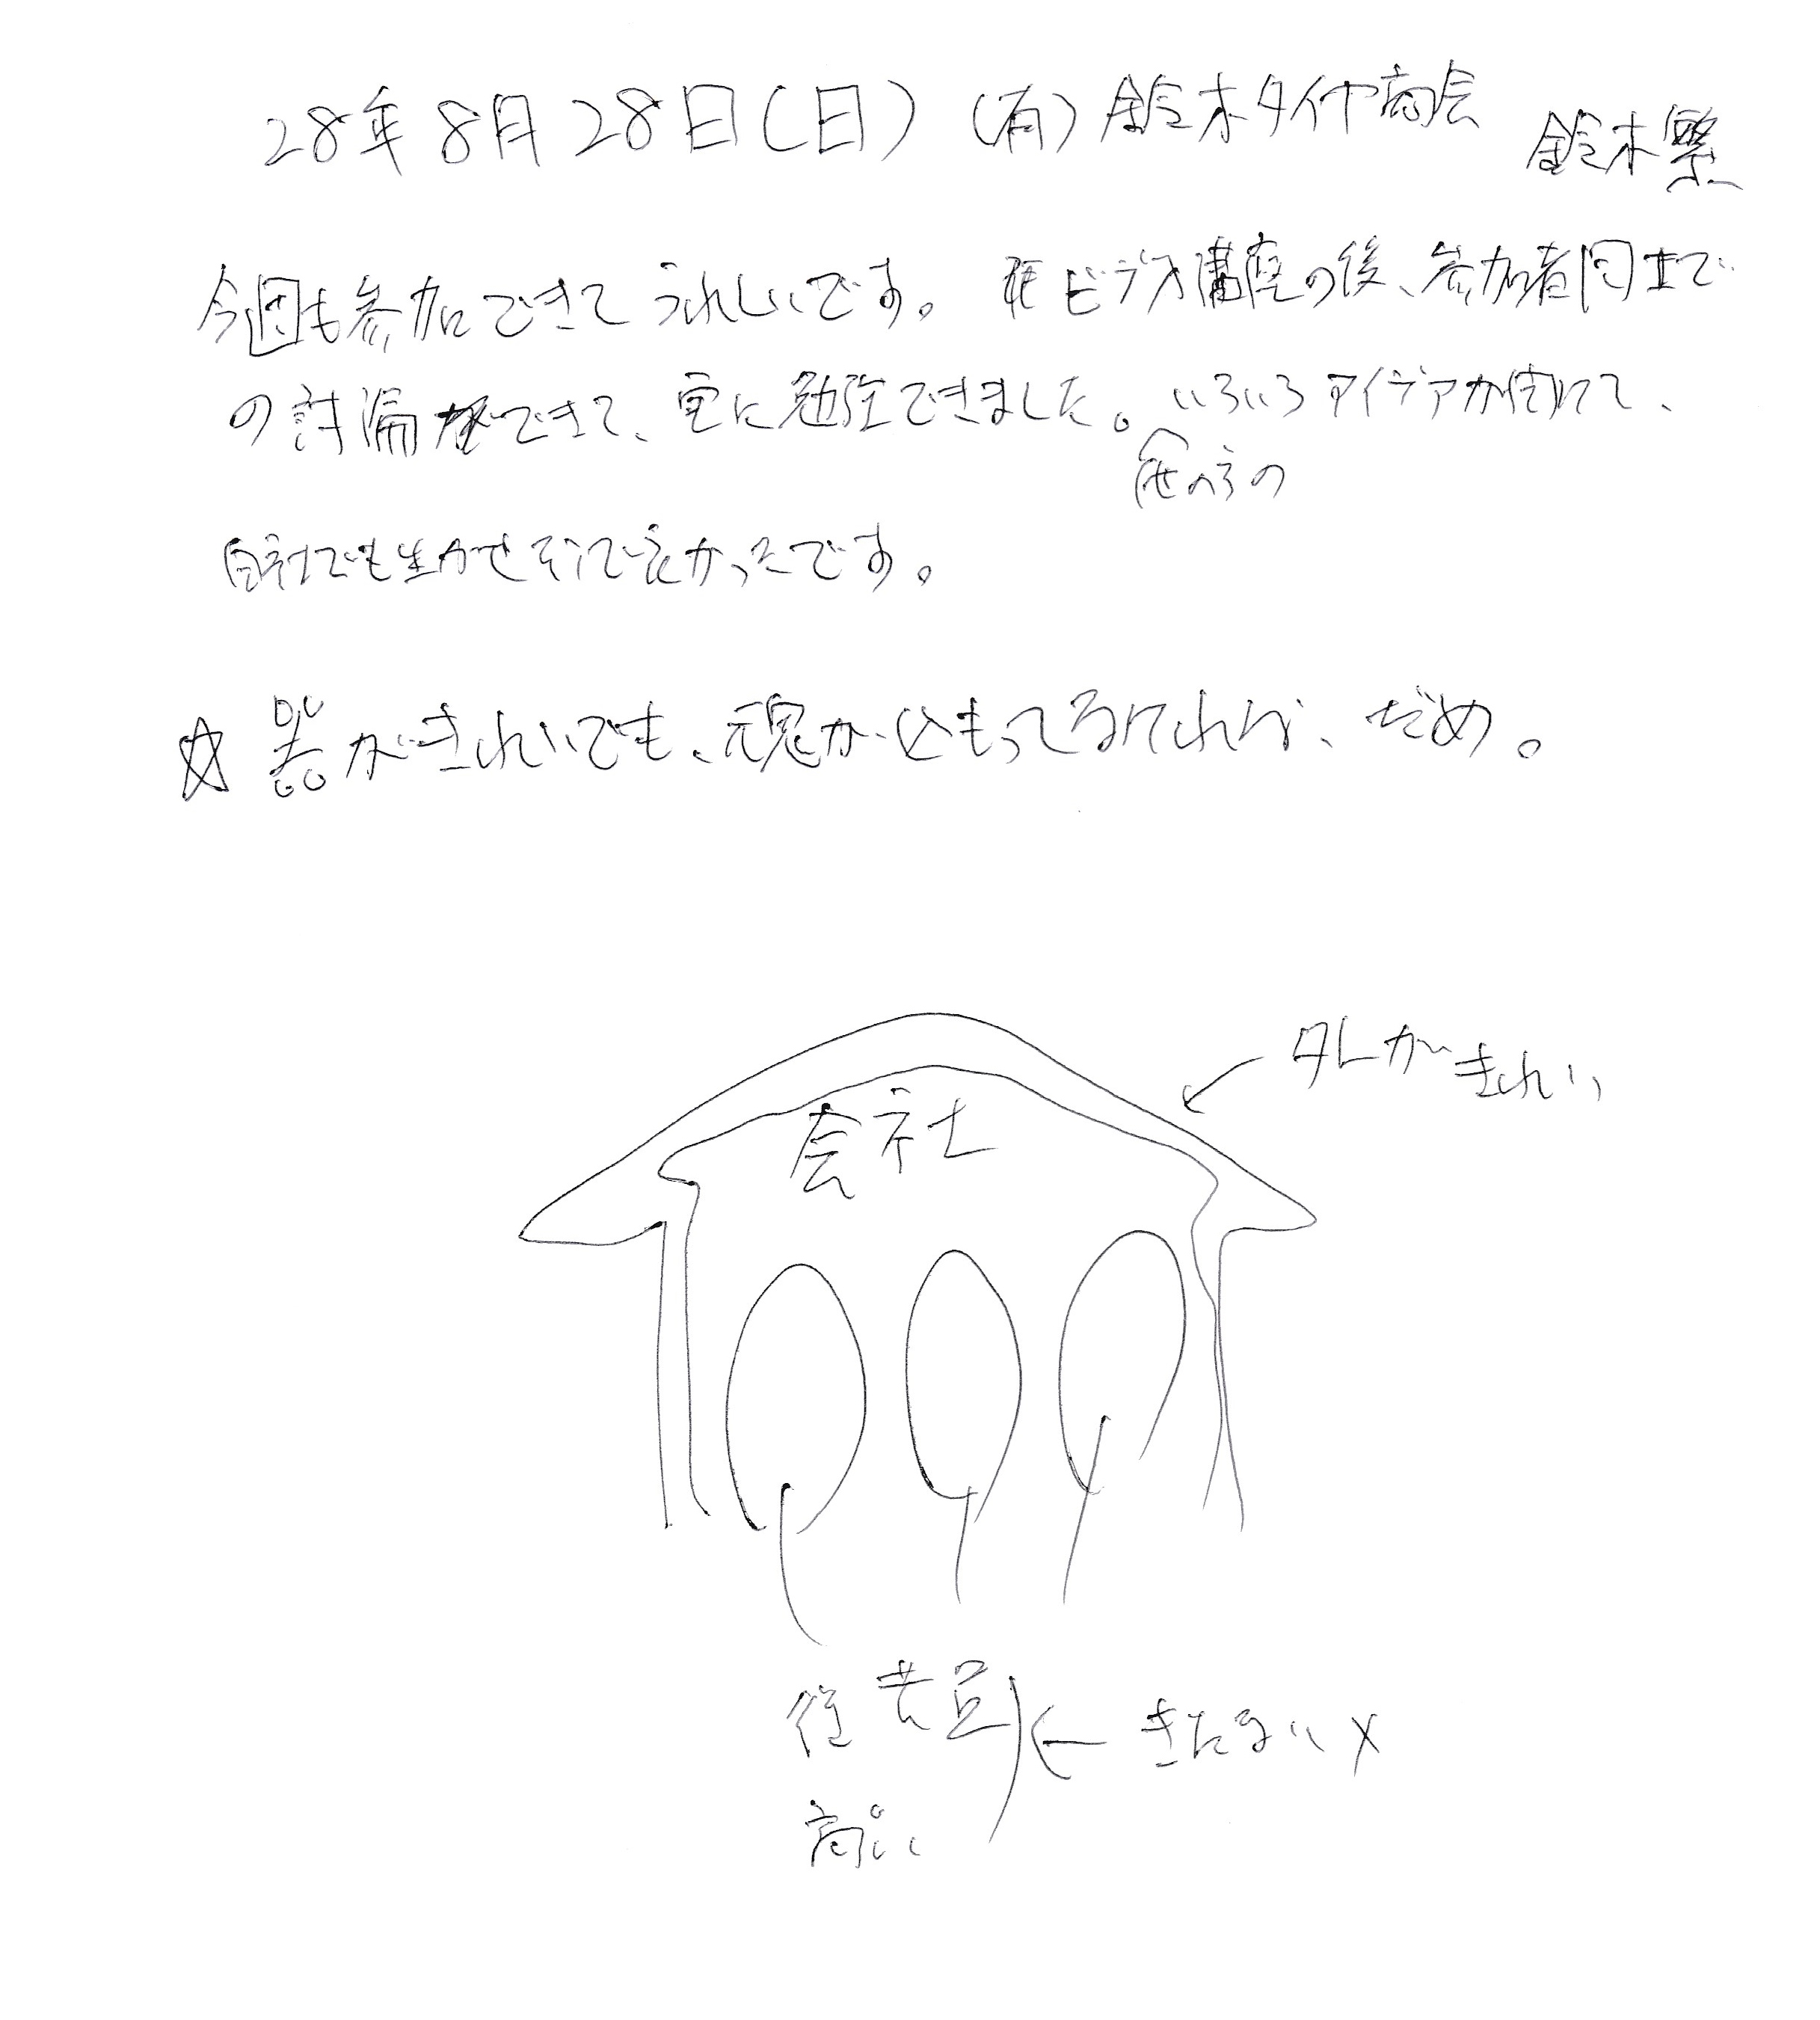 28年8月28日(日) (有)鈴木タイヤ商会 鈴木繁
今週も参加できてうれしいです。 ビデオ講座の後、参加者同士で
の討論ができて、実に勉強できました。いろいろアイデアが出て、
他の方の
自社でも生かせそうで良かったです。
☆ 器がきれいでも、魂が込もってなければ、だめ。
外がきれい
会社
従業員
きたない ×
商い